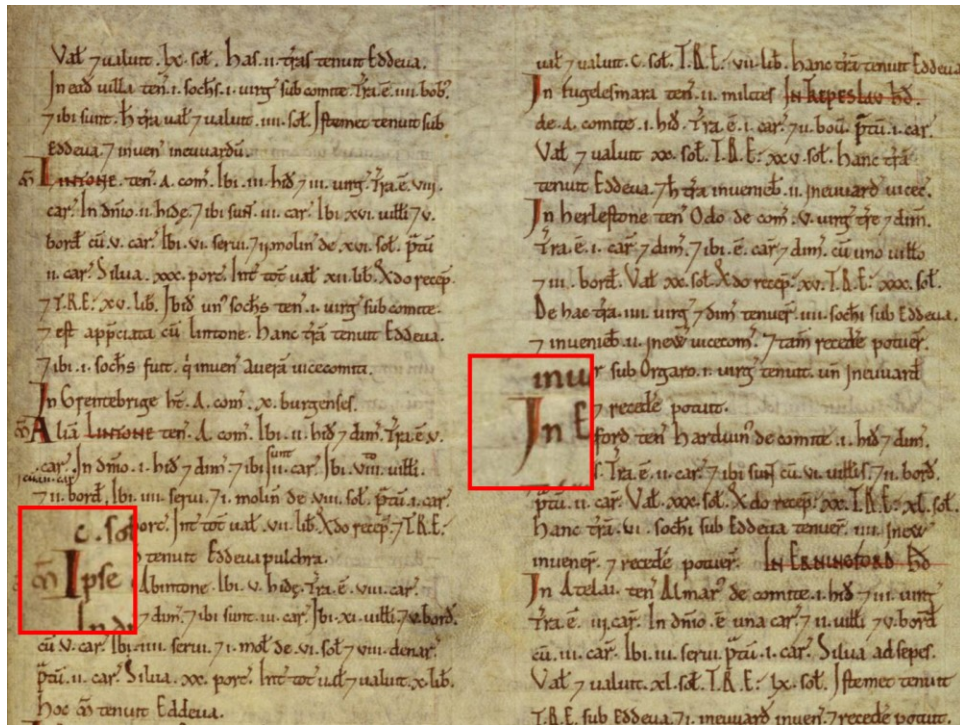 Val̃ ⁊ valuit. lx. sol̃. Has. ii. t̃ras tenuit Eddeua.
In ead̃ uilla ten̄. i. sochs. i. uirg̃ sub comite. T̃ra. ē. iiii. bob;
⁊ ibi sunt. H̃ t̃ra ual̃ ⁊ valuit. iiii. sol̃. Istemet tenuit sub
Eddeua. ⁊ inuen̄ ineuuardū.
m̃ Lintone. ten̄. A. com̃. Ibi. iii. hid̃ ⁊ iii. uirg̃. T̃ra. ē. viii.
car̃. In dn̄io. ii. hidę. ⁊ ibi sun̄t. iii. car̃. Ibi. xvi. uilli ⁊ v.
bord̃ cū. v. car̃. Ibi. vi. serui. ⁊ ii molin̄ de xvi. sol̃. p̃tū
ii. car̃. Silua. xxx. porc̃. Int̃ tot̃ ual̃. xii. lib̃. Q̃do recep̃.
⁊ T.R.E: xv. lib̃. Ibid̃ un⁹ sochs ten̄. i. uirg̃ sub comite.
⁊ est app̃ciata cū lintone. Hanc t̃rā tenuit Eddeua.
⁊ ibi. i. sochs fuit. q̇ inuen̄ Auerā vicecomiti.
In Grentebrige ht̃. A. com̃. x. burgenses.
m̃ Alia Lintone ten̄. A. com̃. Ibi. ii. hid̃ ⁊ dim̃. T̃ra. ē. v.
car̃. In dn̄io. i. hid̃ ⁊ dim̃. ⁊ ibi sunt ii. car̃. Ibi. viii. uilli.
⁊ ii. bord̃. Ibi. iiii. serui. ⁊ i. molin̄ de viii. sol̃. p̃tū. i. car̃.
c. sol̃ porc̃. Int̃ tot̃ ual̃. vii. lib̃. Q̃do recep̃. ⁊ T.R.E:
tenuit Eddeua pulchra.
m̃ Ipse Abintone. Ibi. v. hidę. T̃ra. ē. viii. car̃.
In ⁊ dim̃. ⁊ ibi sunt. iii. car̃. Ibi. xi. uilli. ⁊ v. bord̃.
cū v. car̃. Ibi. iiii. serui. ⁊ i. mol̃ de. vi. sol̃ ⁊ viii. denar̃.
p̃tū. ii. car̃. Silua. xx. porc̃. Int̃ tot̃ ual̃ ⁊ valuit. x. lib̃.
Hoc m̃ tenuit Eddeua.
ual̃ ⁊ valuit. c. sol̃. T.R.E: vii. lib̃. Hanc t̃rā tenuit Eddeua
In fugelesmara ten̄. ii. milites In Repeslau hd̃.
de. A. comite. i. hid̃. T̃ra. ē. i. car̃. ⁊ ii. boū. p̃tū. i. car̃.
Val̃ ⁊ valuit xx. sol̃. T.R.E: xxv. sol̃. Hanc t̃rā
tenuit Eddeua. ⁊ h̃ t̃ra inuenieb̃. ii. Ineuuard̃ vicec̃.
In herlestone ten̄ Odo de com̃. v. uirg̃ t̃re ⁊ dim̃.
T̃ra. ē. i. car̃ ⁊ dim̃. ⁊ ibi. ē. car̃ ⁊ dim̃. cū uno uillo
⁊ iii. bord̃. Val̃ xx. sol̃. Q̃do recep̃. xv. T.R.E: xxx. sol̃.
De hac t̃ra. iiii. uirg̃ ⁊ dim̃ tenuer̃. iiii. sochi sub Eddeua.
⁊ inuenieb̃. ii. Inew̃ uicecom̃. ⁊ tam̃ recedẽ potuer̃.
inuu r sub Orgaro. i. uirg̃ tenuit. un̄ Ineuuard̃
⁊ recedẽ potuit.
In E ford ten̄ harduin̄ de comite. i. hid̃ ⁊ dim̃.
T̃ra. ē. ii. car̃. ⁊ ibi sun̄t cū. vi. uillis. ⁊ ii. bord̃.
p̃tū. ii. car̃. Val̃. xxx. sol̃. Q̃do recep̃: xx. T.R.E: xl. sol̃.
Hanc t̃rā. vi. sochi sub Eddeua tenuer̃. iiii. Inew̃
inuener̃. ⁊ recedẽ potuer̃. In Erningford hd̃
In Atelai. ten̄ Almar̃ de comite. i. hid̃ ⁊ iii. uirg̃
T̃ra. ē. iii. car̃. In dn̄io. ē una car̃. ⁊ ii. uilli ⁊ v. bord̃
cū. ii. car̃. Ibi. iii. serui. p̃tū. i. car̃. Silua ad sepes.
Val̃ ⁊ valuit. xl. sol̃. T.R.E: lx. sol̃. Istemet tenuit
T.R.E. sub Eddeua. ⁊ i. ineuuard̃ inuen̄. ⁊ recedẽ potuit.